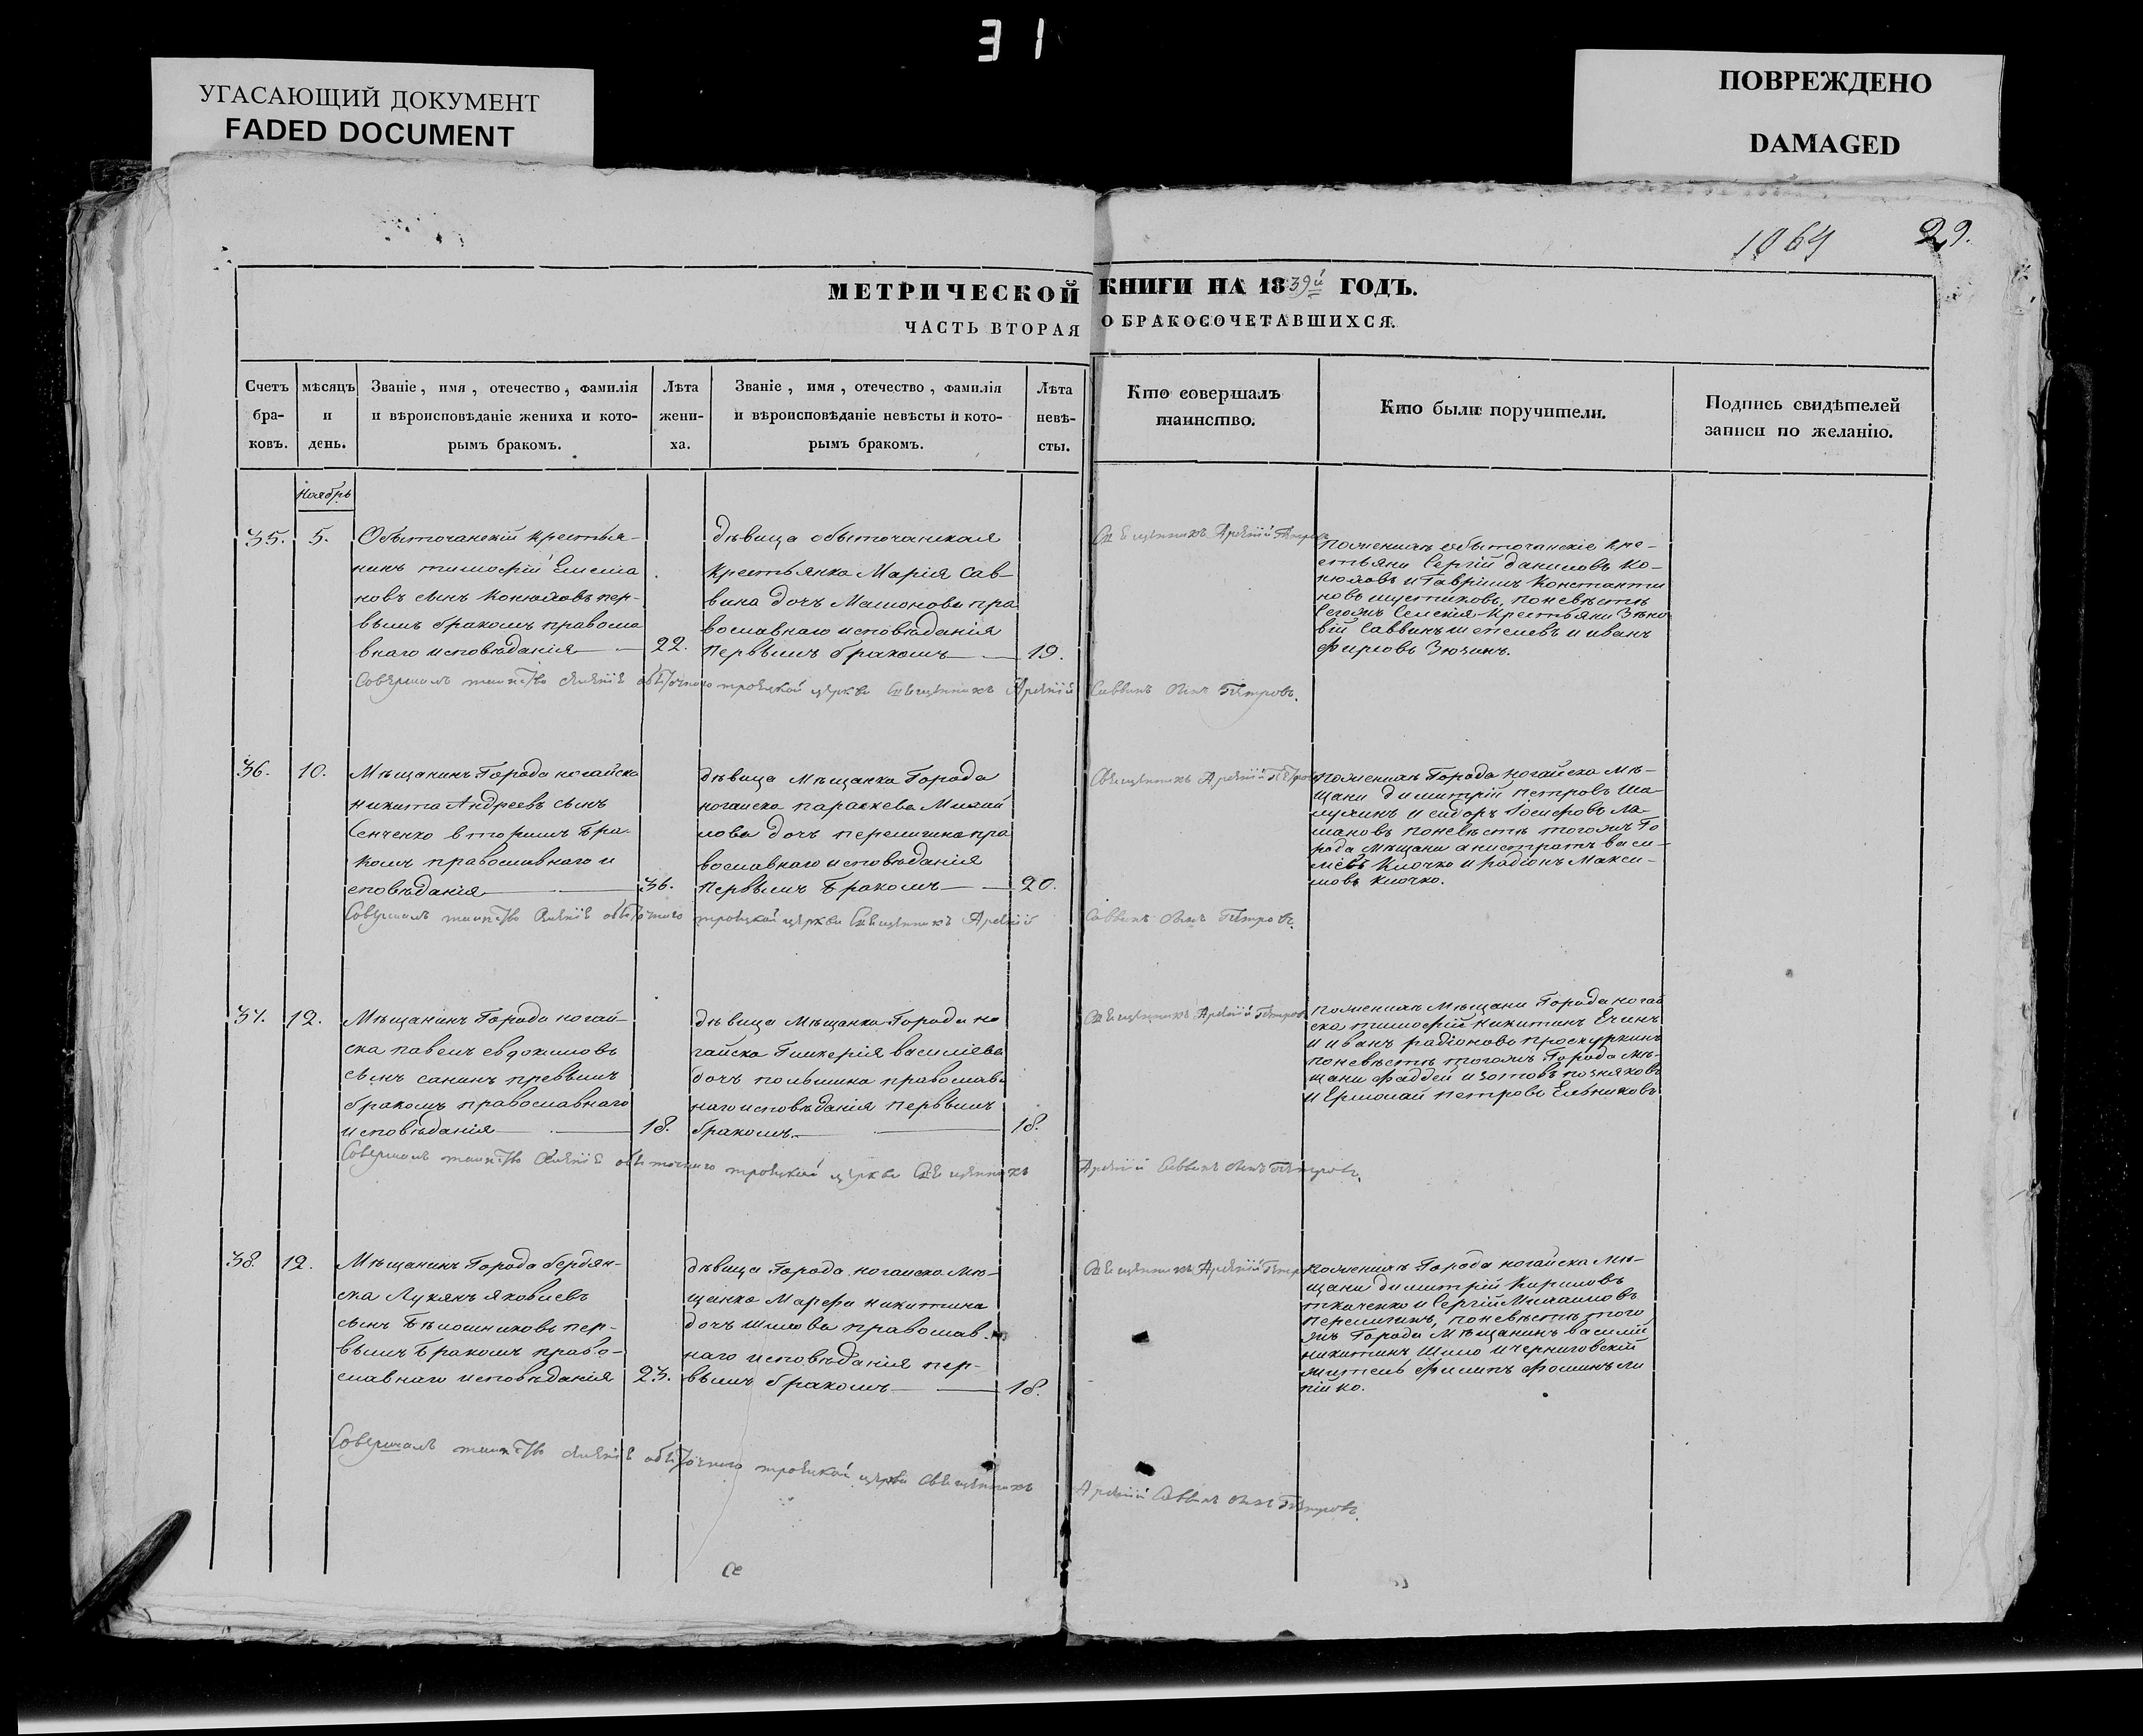 31
УГАСАЮЩИЙ ДОКУМЕНТ
FADED DOCUMENT
ПОВРЕЖДЕНО
DAMAGED
1064
29.
МЕТРИЧЕСКОЙ КНИГИ НА 1839й ГОДЪ.
ЧАСТЬ ВТОРАЯ О БРАКОСОЧЕТАВШИХСЯ.
Счетъ
бра-
ковъ.
мѣсяцъ
и
день.
Званіе, имя, отечество, фамилія
и вѣроисповѣданіе жениха и кото-
рымъ бракомъ.
Лѣта
жени-
ха.
Званіе, имя, отечество, фамилія
и вѣроисповѣданіе невѣсты и кото-
рымъ бракомъ.
Лѣта
невѣ-
сты.
Кто совершалъ
таинство.
Кто были поручители.
Подпись свидѣтелей
записи по желанію.
Ноябрь
35.
5.
Обыточанскій крестья-
нинъ тимофій Емелiа
новъ сынъ Конюховъ пер-
вымъ бракомъ правосла
внаго исповѣданія
22.
дѣвица обыточанская
крестьянка Марія Сав-
вина дочъ Мамонова пра
вославнаго исповѣданія
первымъ бракомъ
19.
Священникъ Арсеній Петровъ
поженихѣ обыточанскіе кре-
стьяни Сергій даниловъ Ко-
нюховъ и Гавріилъ Константи
новъ шустиковъ, поневѣстѣ
Сегожъ Селенія крестьяни Зѣно
вій Саввинъ шепелевъ и иванъ
фирсовъ Зюзинъ.
Совершалъ таинство селенія обыточного троицкой церкви Священникъ Арсеній Саввинъ сынъ Петровъ.
36.
10.
Мѣщанинъ Города ногайска
никита Андреевъ сынъ
Сенченко вторымъ бра-
комъ православнаго и
сповѣданія
36.
дѣвица Мѣщанка Города
ногайска параскева Михай
лова дочъ перепишина пра
вославнаго исповѣданія
первымъ бракомъ
20.
Священникъ Арсеній Петровъ
поженихѣ Города ногайска мѣ-
щани димитрій петровъ Ша
лухинъ и сидоръ Іосифовъ ла-
мановъ поневѣстѣ тогожъ Го
рода Мѣщани анистратъ васи-
лiевъ Клочко и радіонъ Макси-
мовъ клочко.
Совершалъ таинство Селенія обыточного троицкой церкви Священникъ Арсеній Саввинъ сынъ Петровъ.
37.
12.
Мѣщанинъ Города ногай-
ска павелъ евдокимовъ
сынъ санинъ превымъ
бракомъ православнаго
исповѣданія
18.
дѣвица Мѣщанка Города но
гайска Гликерія василіева
дочъ полынина православ
наго исповѣданія первымъ
бракомъ.
18.
Священникъ Арсеній Петровъ
поженихѣ Мѣщани Города ногай
ска тимофій никитинъ Ечинъ
и иванъ радіоновъ проскуркинъ
поневѣстѣ тогожъ Города мѣ-
щани фаддей изотовъ позняковъ
и Ермолай петровъ Ельниковъ
Совершалъ таинство Селенія обыточного троицкой церкви Священникъ Арсеній Саввинъ сынъ Петровъ.
38.
12.
Мѣщанинъ Города бердян-
ска Лукянъ яковлевъ
сынъ Бѣлошниковъ пер-
вымъ бракомъ право-
славнаго исповѣданія
23.
дѣвица Города ногайска мѣ-
щанка Марфа никитина
дочъ шилова православ-
наго исповѣданія пер-
вымъ бракомъ
18.
Священникъ Арсеній Петровъ
поженихѣ Города ногайска мѣ-
щани димитрій Кириловъ
ткаченко и Сергій Михаиловъ
перепишинъ, поневѣстѣ того
жъ Города Мѣщанинъ василій
никитинъ Шило и черниговскій
житель филипъ фоминъ ли
пійко.
Совершалъ таинство селенія обыточного троицкой церкви Священникъ Арсеній Саввинъ сынъ Петровъ.